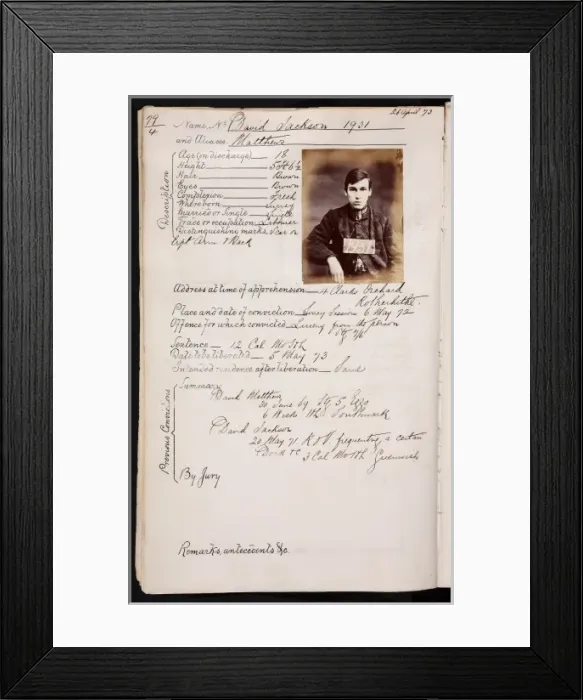 79/4
21 April 73
Name, No. David Jackson 1931
and Aliases Matthews
Description
Age (on discharge) 18
Height 5 ft 6½
Hair Brown
Eyes Brown
Complexion Fresh
Where born Surrey
Married or Single Single
Trade or occupation Labourer
Distinguishing marks Scar on
left Arm & Back
Address at time of apprehension 4 Clarks Orchard
Rotherhithe
Place and date of conviction Surrey Sessions 6 May 72
Offence for which convicted Larceny from the person
Sentence 12 Cal Mo Hd
Date to be liberated 5 May 73
Intended residence after liberation Same
Previous Convictions
Summary
David Matthews
6 Weeks Southwark
David Jackson
20 May 71 R & V frequenting a certain
Dock &c 3 Cal Mo Greenwich
By Jury
Remarks, antecedents &c.